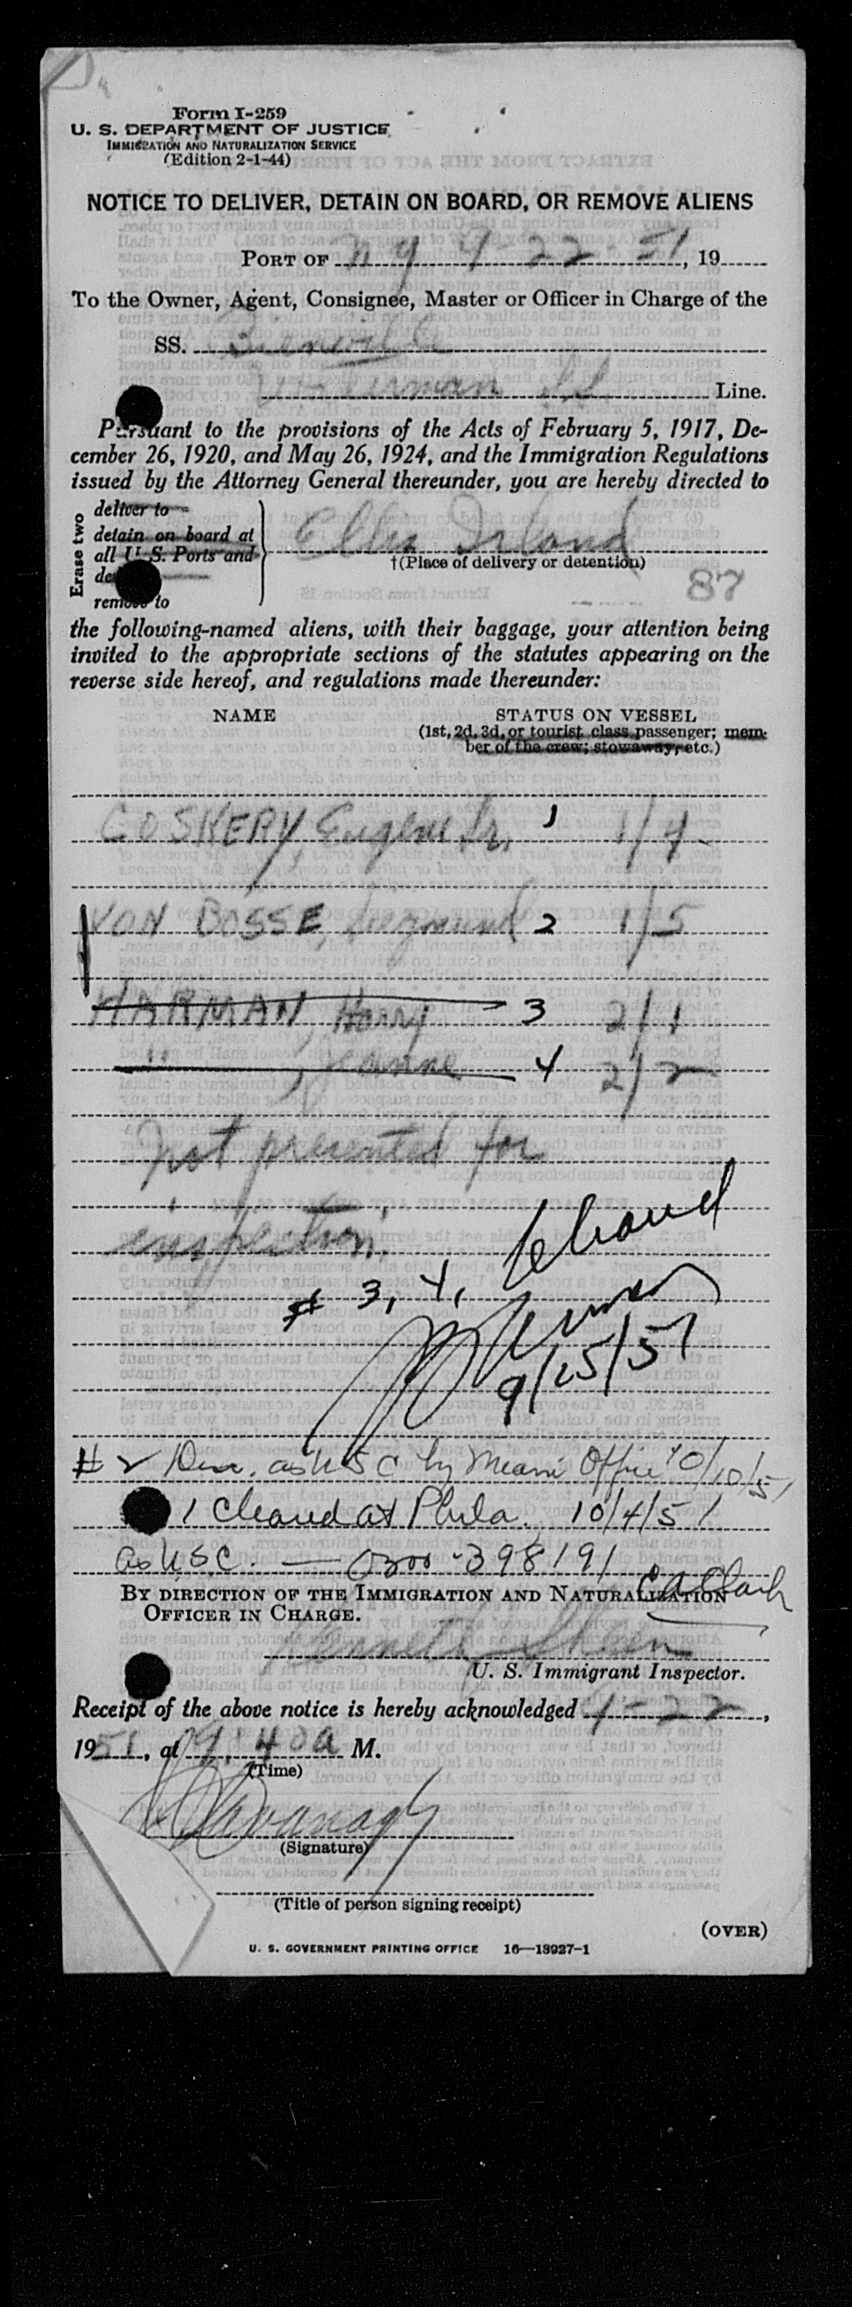 Form I-259
U. S. DEPARTMENT OF JUSTICE
IMMIGRATION AND NATURALIZATION SERVICE
(Edition 2-1-44)
NOTICE TO DELIVER, DETAIN ON BOARD, OR REMOVE ALIENS
PORT OF N Y 9-22-51, 19
To the Owner, Agent, Consignee, Master or Officer in Charge of the
SS. Bienville
Waterman SS Line.
Pursuant to the provisions of the Acts of February 5, 1917, De-
cember 26, 1920, and May 26, 1924, and the Immigration Regulations
issued by the Attorney General thereunder, you are hereby directed to
Erase two
deliver to
detain on board at
all U. S. Ports and
remove to
Ellis Island
†(Place of delivery or detention)
87
the following-named aliens, with their baggage, your attention being
invited to the appropriate sections of the statutes appearing on the
reverse side hereof, and regulations made thereunder:
NAME STATUS ON VESSEL
(1st, 2d, 3d, or tourist class passenger; mem-
ber of the crew; stowaway, etc.)
COSKERY, Eugene Jr. 1 1/4
VON BOSSE, Sigmund 2 1/5
HARMAN, Harry 3 2/1
" , Jeanne 4 2/2
Not presented for
inspection.
# 3, 4, Cleared
9/25/51
# 2 as USC by Miami Office 10/10/51
1 Cleared at Phila. 10/4/51
as U.S.C. — 0300-398191
CA Clark
BY DIRECTION OF THE IMMIGRATION AND NATURALIZATION
OFFICER IN CHARGE.
Kenneth
U. S. Immigrant Inspector.
Receipt of the above notice is hereby acknowledged 9-22,
1951, at 9:40a M.
(Time)
Cavanagh
(Signature)
(Title of person signing receipt)
(OVER)
U. S. GOVERNMENT PRINTING OFFICE 16—13927-1